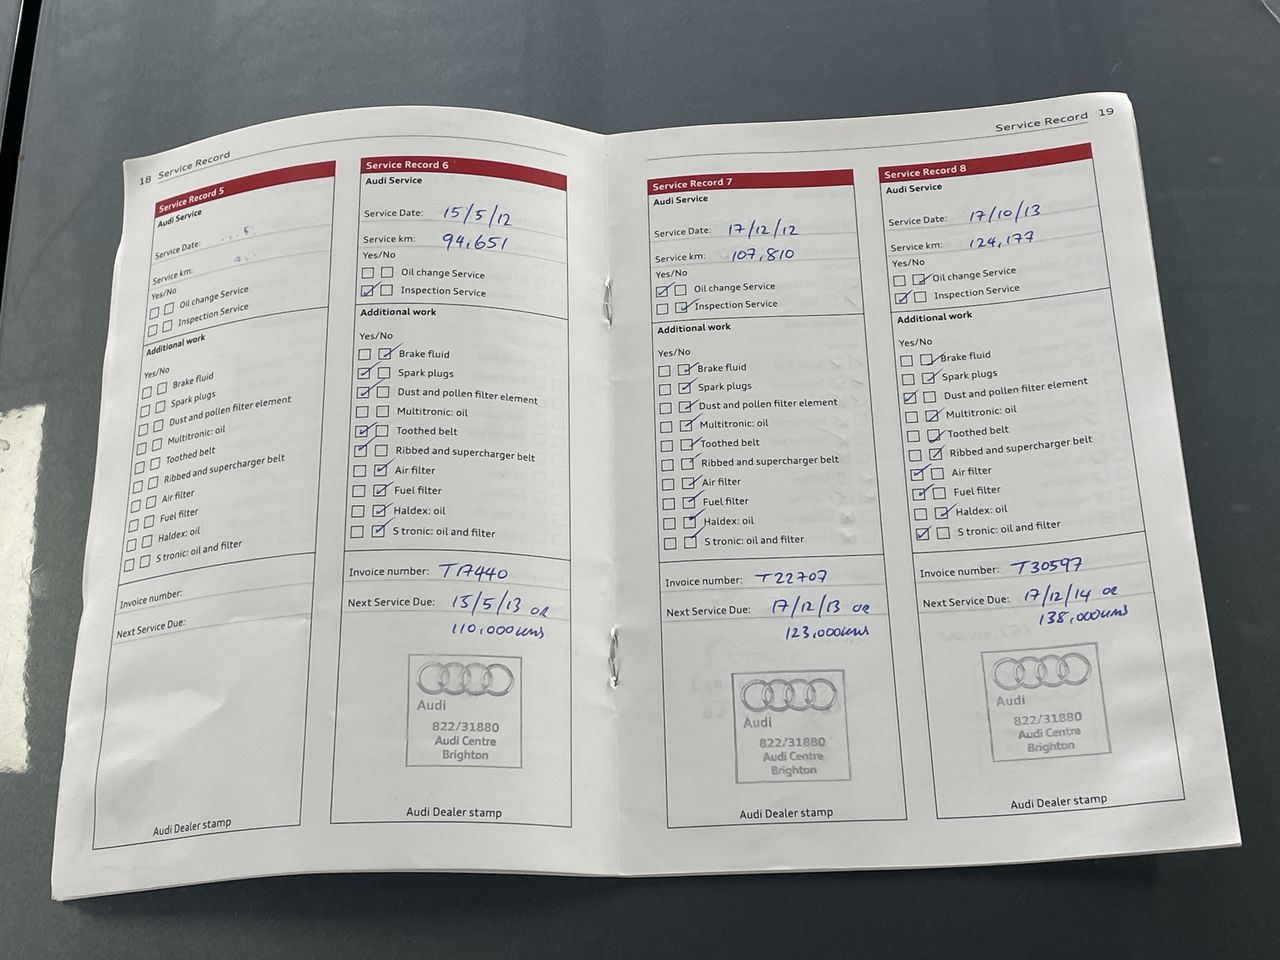 18 Service Record
Service Record 5
Audi Service
Service Date:
Service km:
Yes/No
Oil change Service
Inspection Service
Additional work
Yes/No
Brake fluid
Spark plugs
Dust and pollen filter element
Multitronic: oil
Toothed belt
Ribbed and supercharger belt
Air filter
Fuel filter
Haldex: oil
S tronic: oil and filter
Invoice number:
Next Service Due:
Audi Dealer stamp
Service Record 6
Audi Service
Service Date: 15/5/12
Service km: 94,651
Yes/No
Oil change Service
Inspection Service
Additional work
Yes/No
Brake fluid
Spark plugs
Dust and pollen filter element
Multitronic: oil
Toothed belt
Ribbed and supercharger belt
Air filter
Fuel filter
Haldex: oil
S tronic: oil and filter
Invoice number: T17440
Next Service Due: 15/5/13 OR
110,000kms
Audi
822/31880
Audi Centre
Brighton
Audi Dealer stamp
Service Record 19
Service Record 7
Audi Service
Service Date: 17/12/12
Service km: 107,810
Yes/No
Oil change Service
Inspection Service
Additional work
Yes/No
Brake fluid
Spark plugs
Dust and pollen filter element
Multitronic: oil
Toothed belt
Ribbed and supercharger belt
Air filter
Fuel filter
Haldex: oil
S tronic: oil and filter
Invoice number: T22707
Next Service Due: 17/12/13 OR
123,000kms
Audi
822/31880
Audi Centre
Brighton
Audi Dealer stamp
Service Record 8
Audi Service
Service Date: 17/10/13
Service km: 124,177
Yes/No
Oil change Service
Inspection Service
Additional work
Yes/No
Brake fluid
Spark plugs
Dust and pollen filter element
Multitronic: oil
Toothed belt
Ribbed and supercharger belt
Air filter
Fuel filter
Haldex: oil
S tronic: oil and filter
Invoice number: T30597
Next Service Due: 17/12/14 OR
138,000kms
Audi
822/31880
Audi Centre
Brighton
Audi Dealer stamp